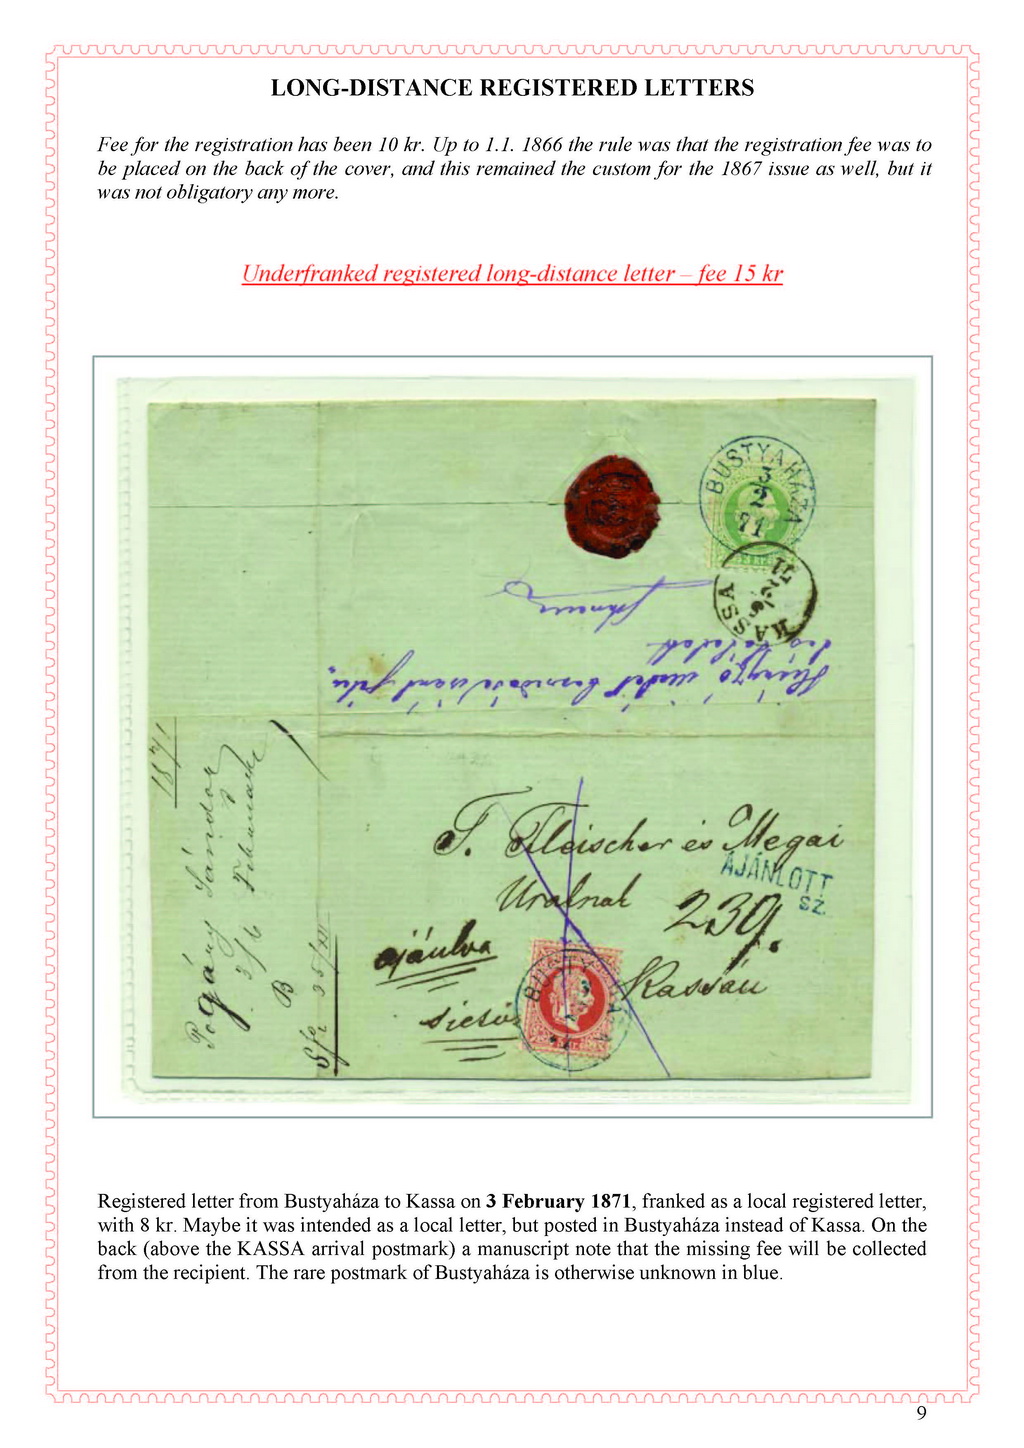 LONG-DISTANCE REGISTERED LETTERS
Fee for the registration has been 10 kr. Up to 1.1. 1866 the rule was that the registration fee was to
be placed on the back of the cover, and this remained the custom for the 1867 issue as well, but it
was not obligatory any more.
Underfranked registered long-distance letter – fee 15 kr
BUSTYAHÁZA
3
2
71
KASSA
1871
Pogány Sándor
3/6
B
J. Fleischer és Megai
Uraknak
AJÁNLOTT
SZ.
239.
ajánlva
Kassán
BUSTYAHÁZA
Registered letter from Bustyaháza to Kassa on 3 February 1871, franked as a local registered letter,
with 8 kr. Maybe it was intended as a local letter, but posted in Bustyaháza instead of Kassa. On the
back (above the KASSA arrival postmark) a manuscript note that the missing fee will be collected
from the recipient. The rare postmark of Bustyaháza is otherwise unknown in blue.
9